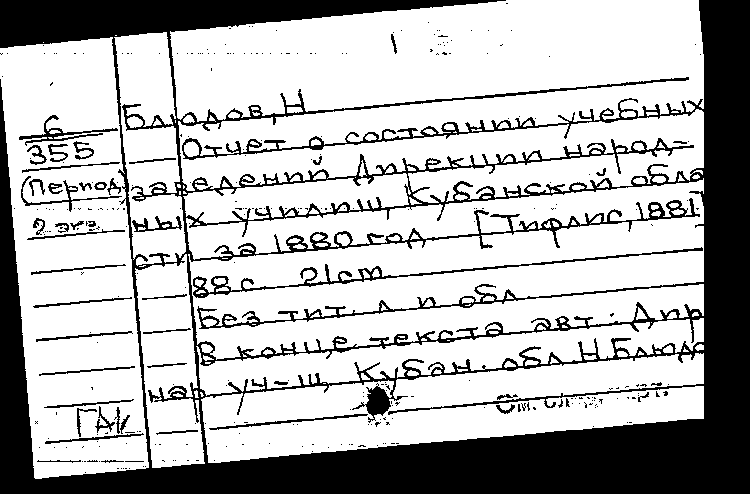 1
6
355
(Период)
2 экз.
Блюдов, Н
Отчет о состоянии учебных
заведений Дирекции народ=
ных училищ, Кубанской обла
сти за 1880 год. [Тифлис, 1881]
88 с 21 cm
Без тит. л и обл
В конце текста авт.: Дир
нар. уч-щ, Кубан. обл Н. Блюдо
См.